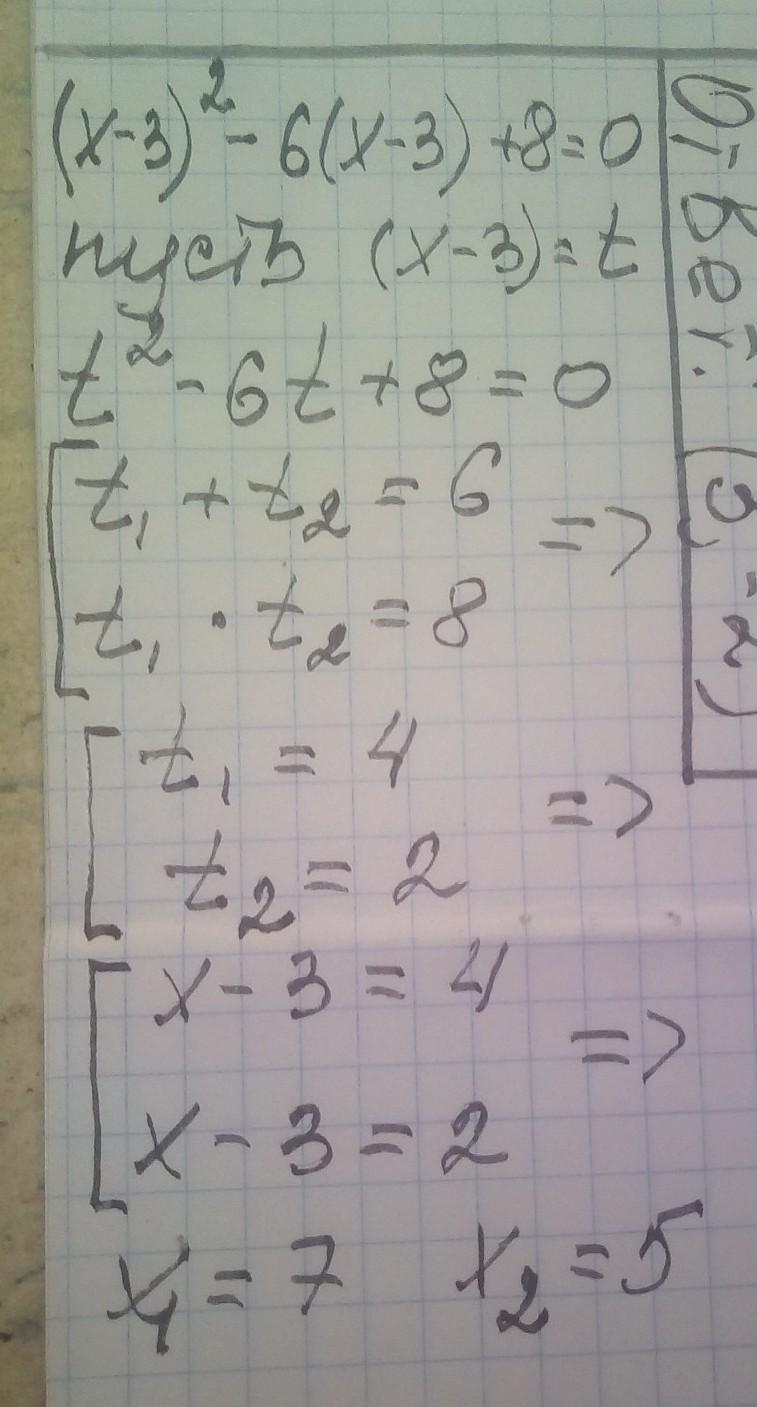 (x-3)² - 6(x-3) +8=0
пусть (x-3)=t
t² - 6t + 8 = 0
[ t₁ + t₂ = 6
t₁ · t₂ = 8 =>
[ t₁ = 4
t₂ = 2 =>
[ x - 3 = 4
x - 3 = 2 =>
x₁ = 7 x₂ = 5
Ответ: